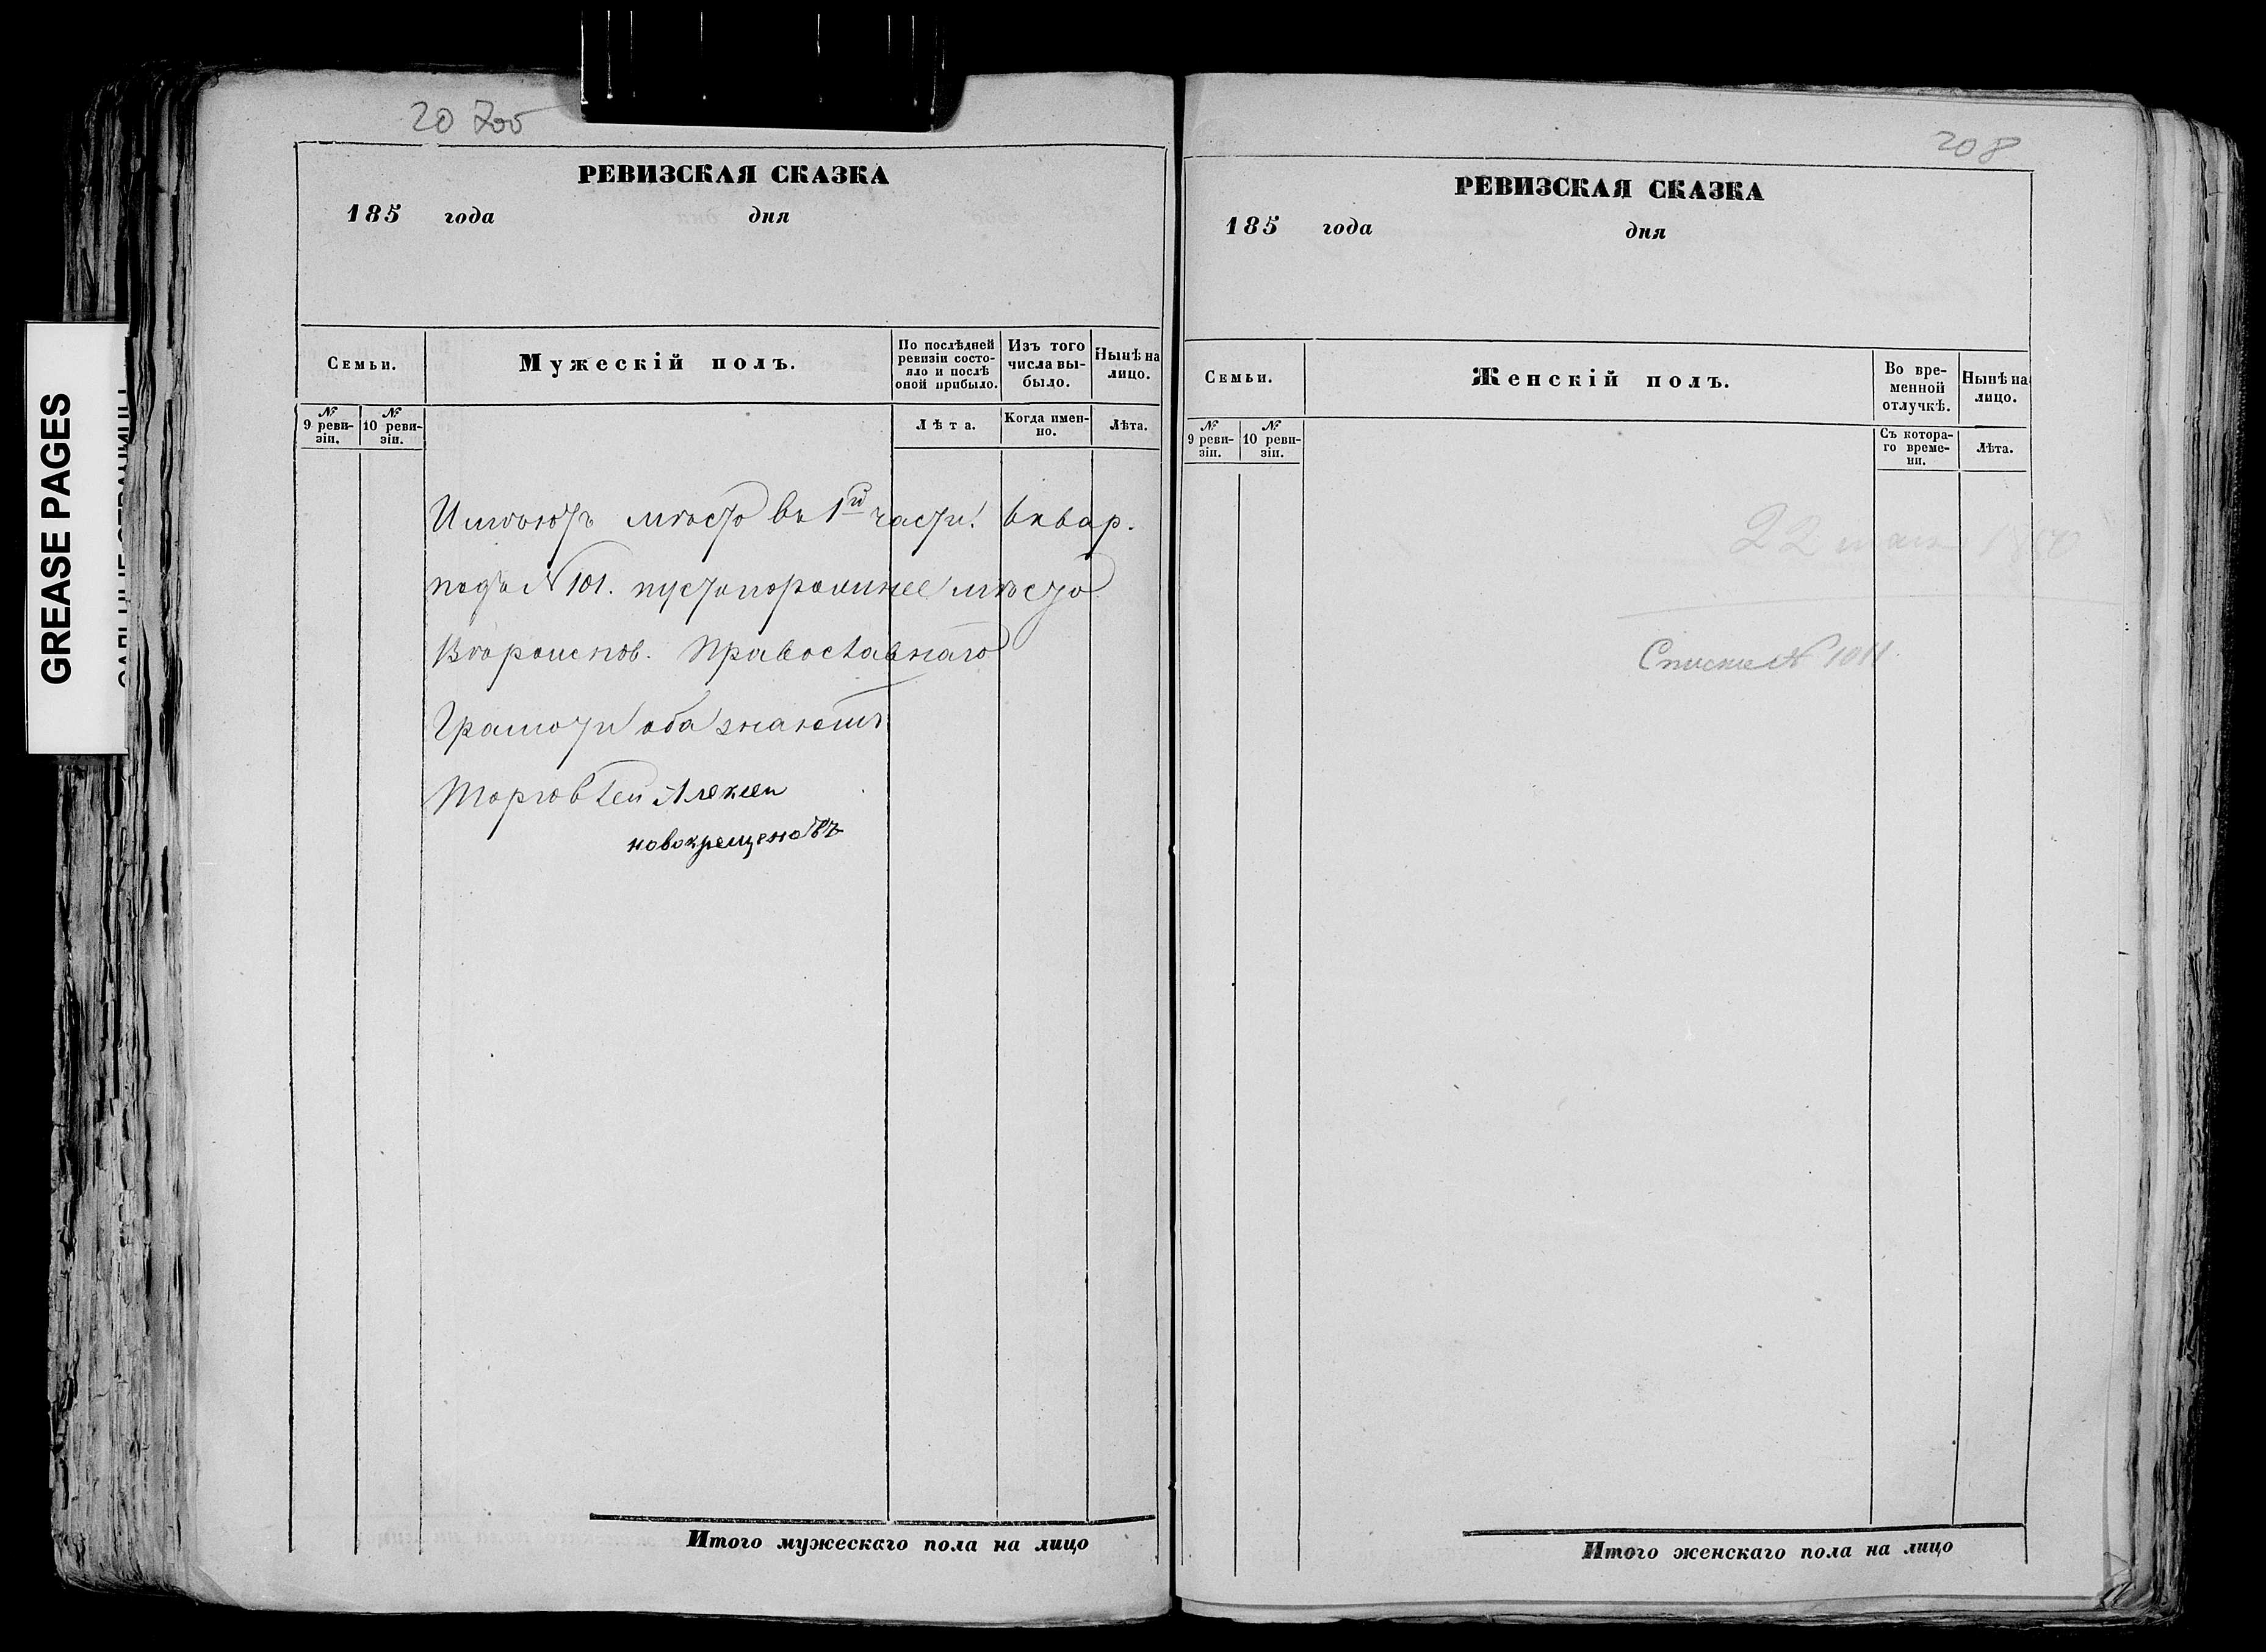 GREASE PAGES
20 Zoo
РЕВИЗСКАЯ СКАЗКА
185 года дня
Семьи.
Мужескій полъ.
По послѣдней ревизіи состояло и послѣ оной прибыло.
Изъ того числа выбыло.
Нынѣ на лицо.
№ 9 ревизіи.
№ 10 ревизіи.
Лѣта.
Когда именно.
Лѣта.
Имѣютъ мѣсто въ 1й части. въ квар.
подъ № 101. пустопорожнее мѣсто
Вѣроисповѣ. Православнаго
Грамоти оба знаютъ
Торговтси Алексеи
новокрещеновъ
Итого мужескаго пола на лицо
208
РЕВИЗСКАЯ СКАЗКА
185 года дня
Семьи.
Женскій полъ.
Во временной отлучкѣ.
Нынѣ на лицо.
№ 9 ревизіи.
№ 10 ревизіи.
Съ котораго времени.
Лѣта.
22
№ 1011
Итого женскаго пола на лицо